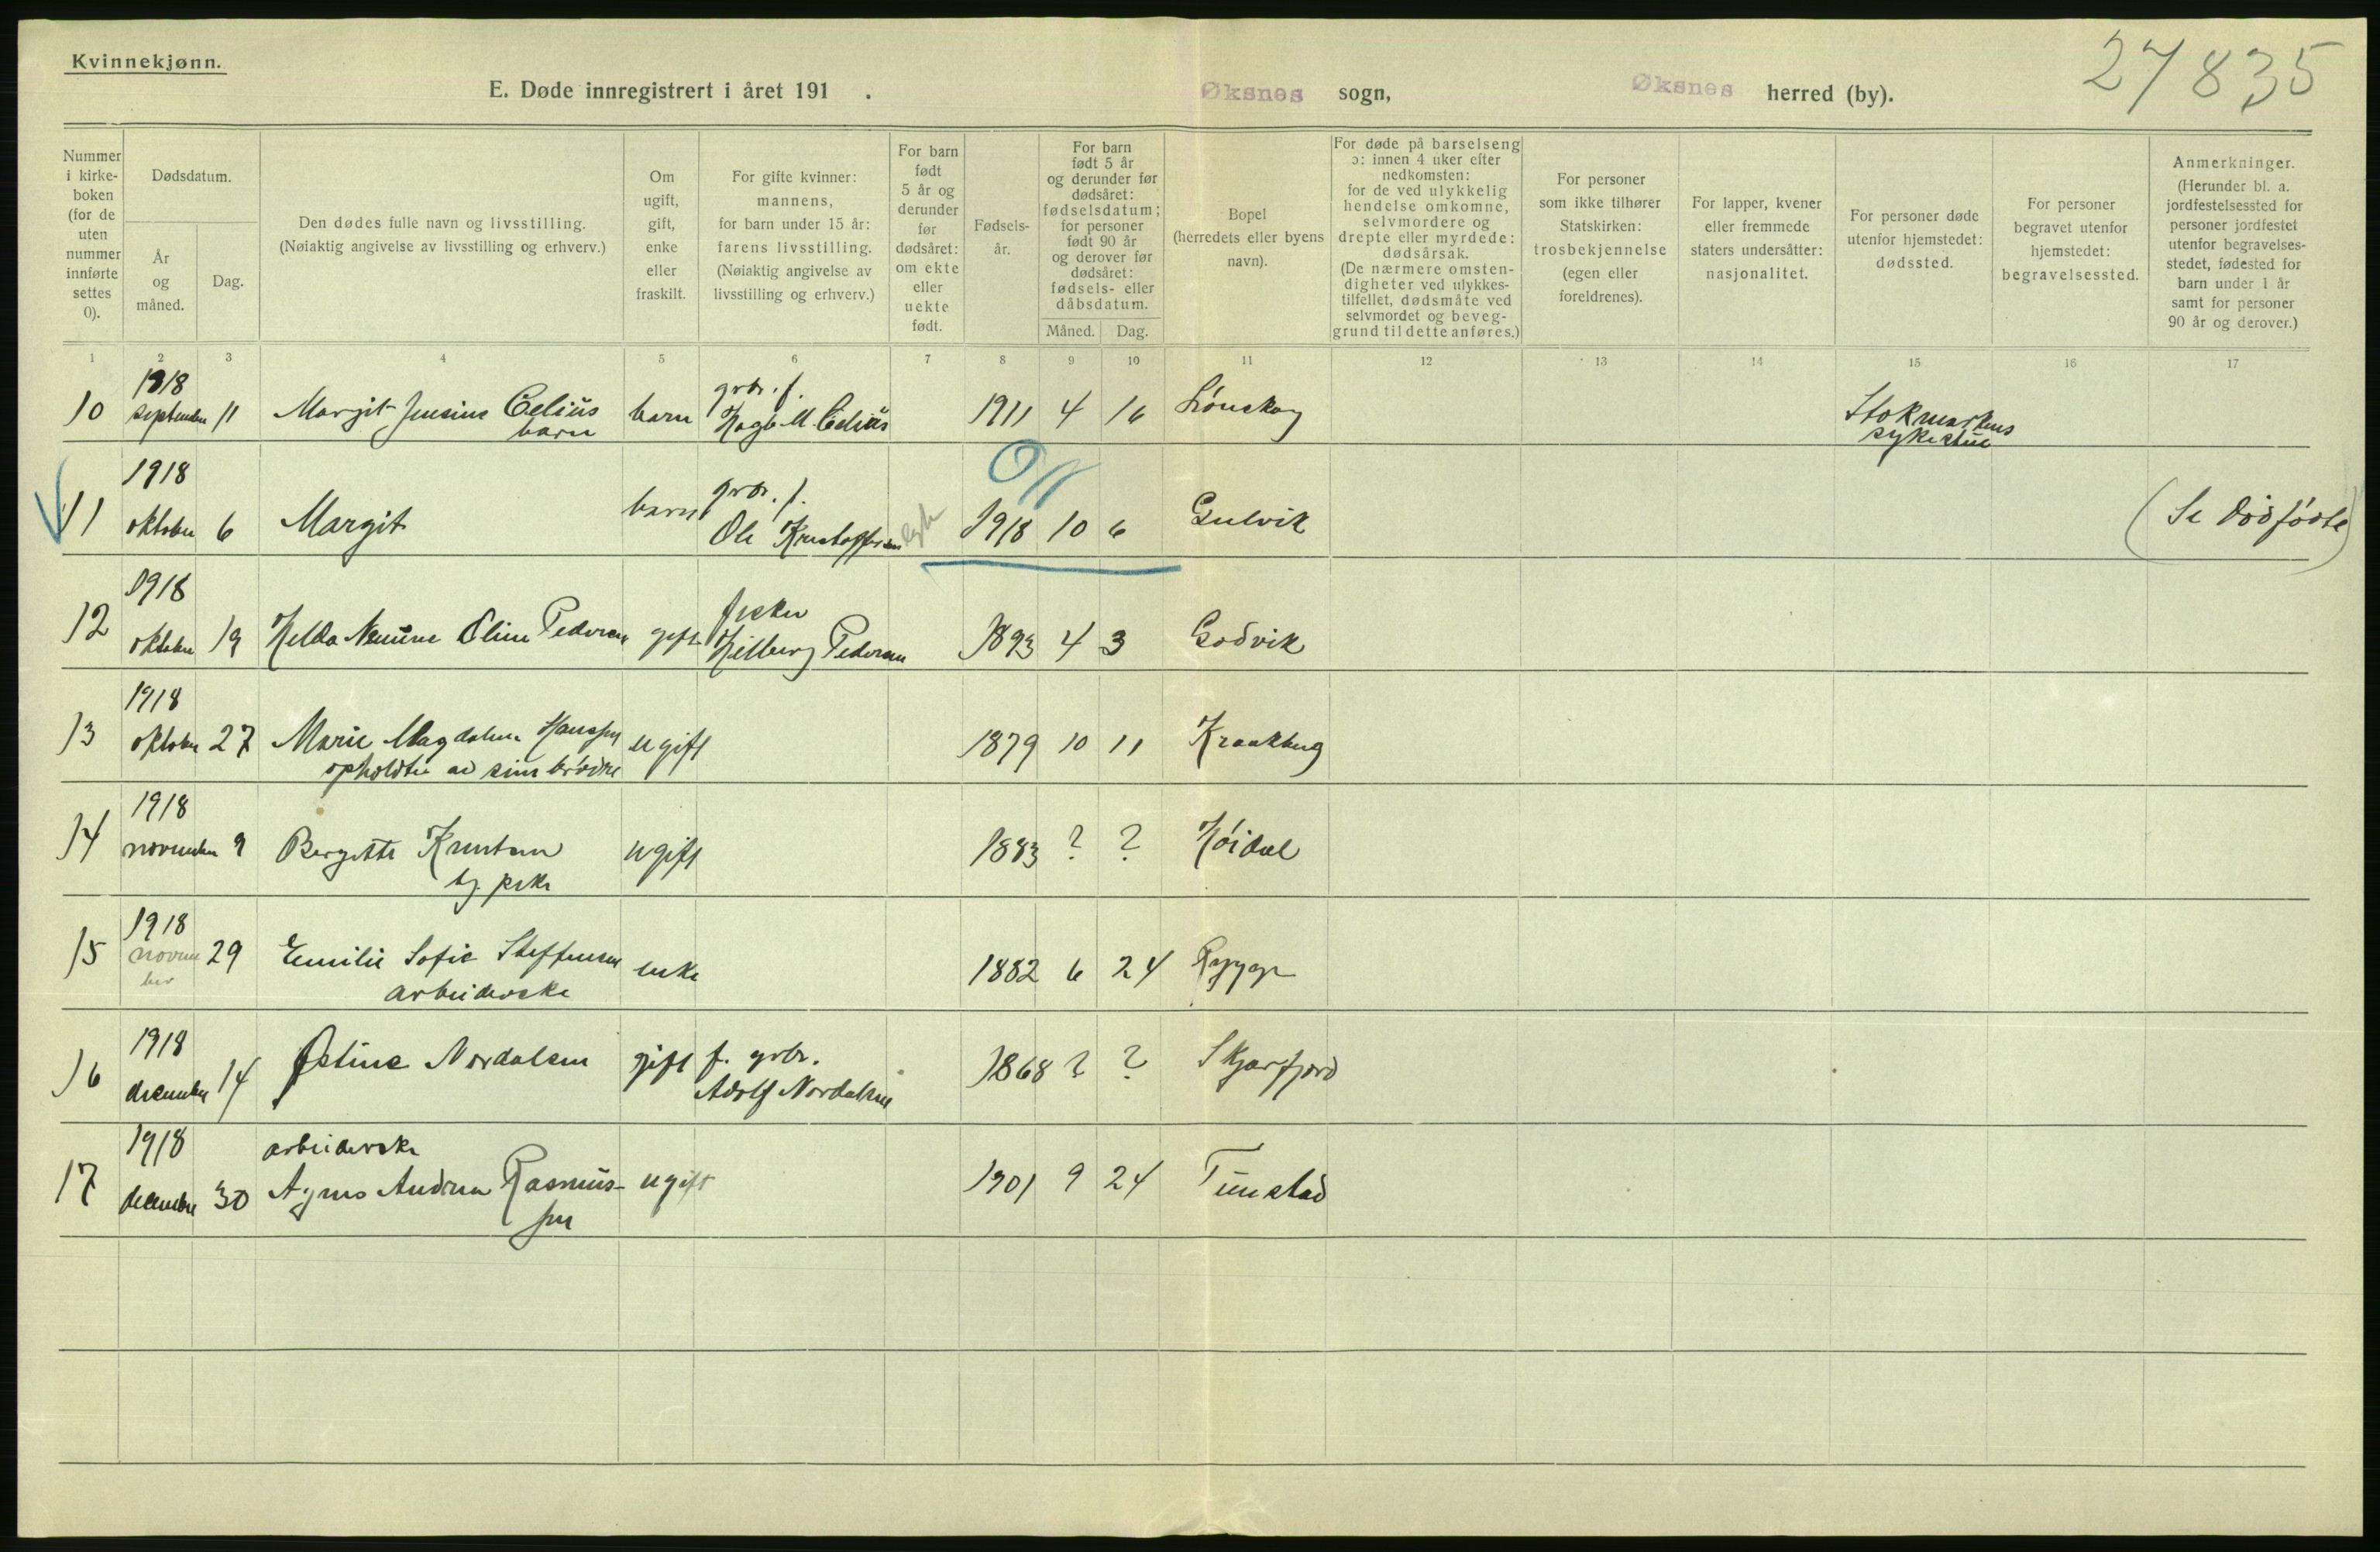 Kvinnekjønn.
27835
E. Døde innregistrert i året 191 . Øksnes sogn, Øksnes herred (by).
Nummer i kirkeboken (for de uten nummer innførte settes 0).
Dødsdatum.
År og måned.
Dag.
Den dødes fulle navn og livsstilling.
(Nøiaktig angivelse av livsstilling og erhverv.)
Om ugift, gift, enke eller fraskilt.
For gifte kvinner: mannens, for barn under 15 år: farens livsstilling.
(Nøiaktig angivelse av livsstilling og erhverv.)
For barn født 5 år og derunder før dødsåret: om ekte eller uekte født.
Fødselsår.
For barn født 5 år og derunder før dødsåret: fødselsdatum; for personer født 90 år og derover før dødsåret: fødsels- eller dåbsdatum.
Måned. Dag.
Bopel (herredets eller byens navn).
For døde på barselseng ɔ: innen 4 uker efter nedkomsten: for de ved ulykkelig hendelse omkomne, selvmordere og drepte eller myrdede: dødsårsak.
(De nærmere omstendigheter ved ulykkestilfellet, dødsmåte ved selvmordet og beveggrund til dette anføres.)
For personer som ikke tilhører Statskirken: trosbekjennelse (egen eller foreldrenes).
For lapper, kvener eller fremmede staters undersåtter: nasjonalitet.
For personer døde utenfor hjemstedet: dødssted.
For personer begravet utenfor hjemstedet: begravelsessted.
Anmerkninger.
(Herunder bl. a. jordfestelsessted for personer jordfestet utenfor begravelsesstedet, fødested for barn under 1 år samt for personer 90 år og derover.)
1 2 3 4 5 6 7 8 9 10 11 12 13 14 15 16 17
1918
10 september 11 Margit Jensine Celius barn grbr. f. 1911 4 16
barn
Stokmarknes
sykestue
1918
11 oktober 6 Margit barn grbr. f. 1918 10 6 Gulvik (Se dødfødte)
Ole Kristoffersen
1918
12 oktober 19 Oline Pedersen gift fisker 1893 4 3 Godvik
Hilberg Pedersen
1918
13 oktober 27 Marie Magdalena Hanssen ugift 1879 10 11 Kraakberg
opholdtes av sine brødre
1918
14 november 9 Bergitte Knutsen ugift 1883 ? ? Høidal
1918
15 november 29 Emilie Sofie Steffensen enke 1882 6 24 Rygge
arbeiderske
1918
16 december 14 Østine Nordalsen gift f. grbr. 1868 ? ? Skjærfjord
Adolf Nordalsen
1918 arbeiderske
17 december 30 Agnes Andrea Rasmus- ugift 1901 9 24 Tunstad
sen